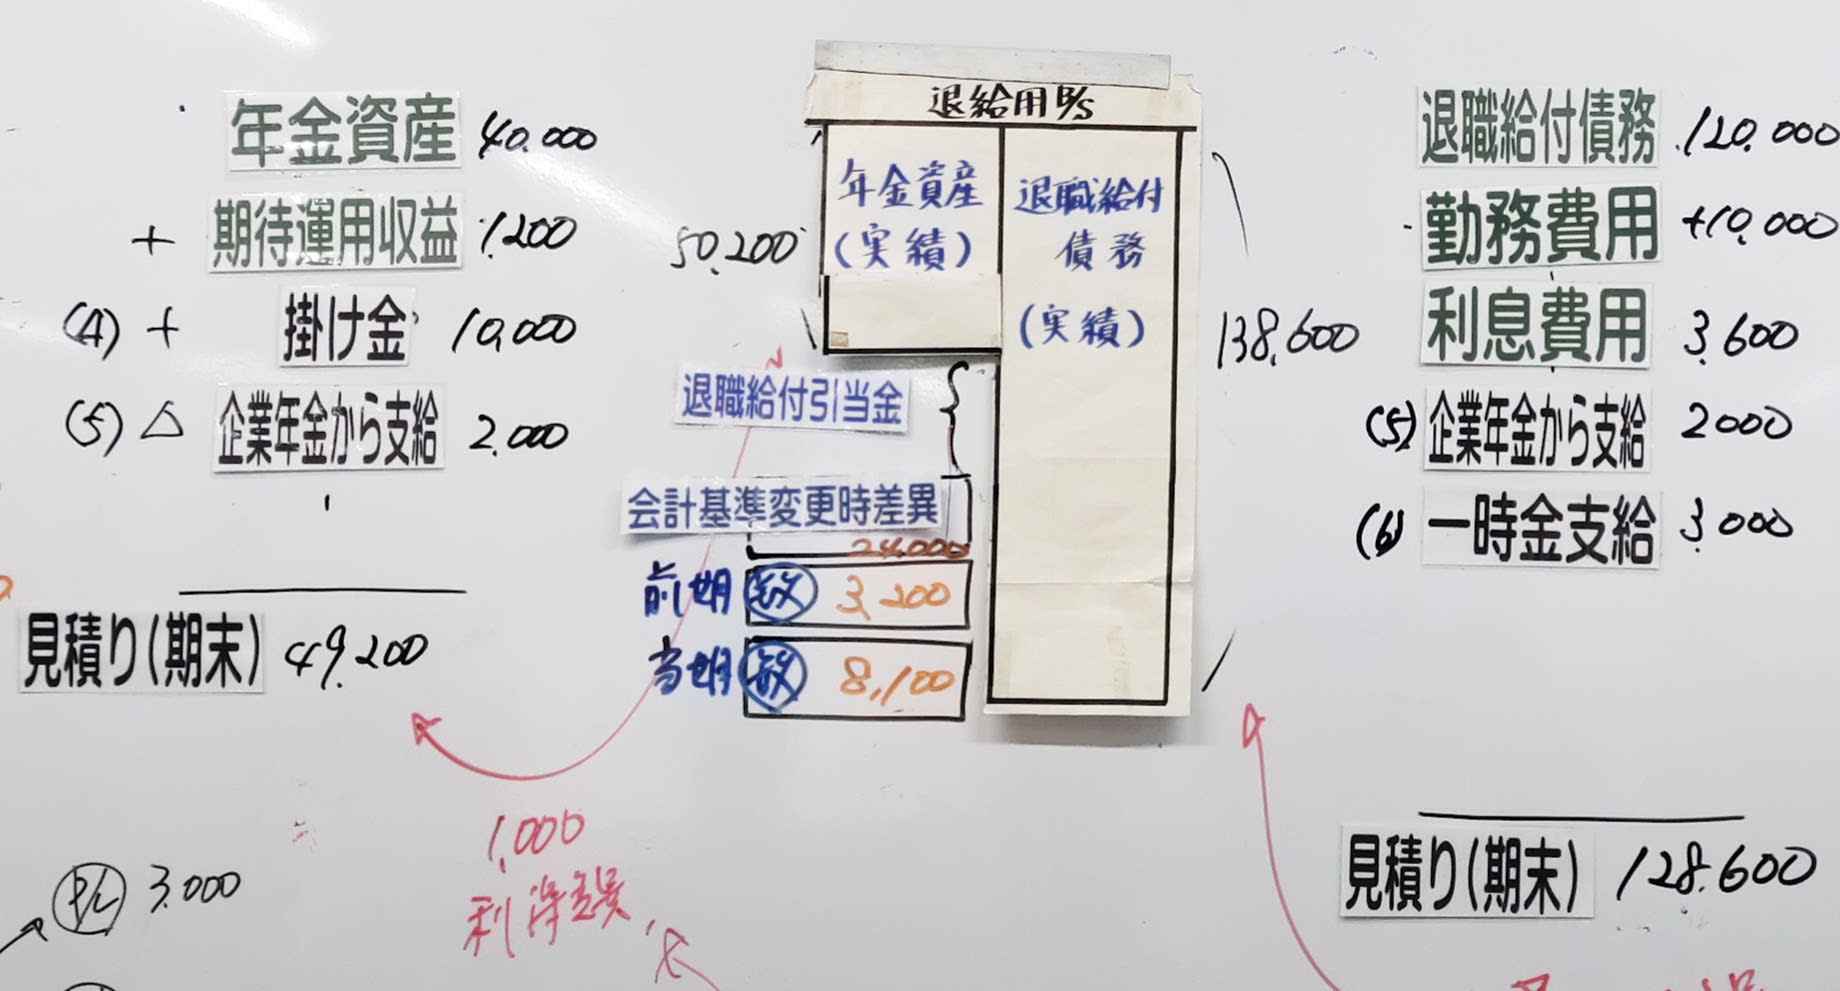 年金資産 40,000
+ 期待運用収益 1,200
(4) + 掛け金 10,000
(5) △ 企業年金から支給 2,000
見積り(期末) 49,200
P/L 3,000
1,000
利得差異
退給用B/S
50,200
年金資産
(実績)
退職給付
債務
(実績)
138,600
退職給付引当金
会計基準変更時差異
24,000
前期 数 3,200
当期 数 8,100
退職給付債務 120,000
勤務費用 +10,000
利息費用 3,600
(5) 企業年金から支給 2000
(6) 一時金支給 3,000
見積り(期末) 128,600